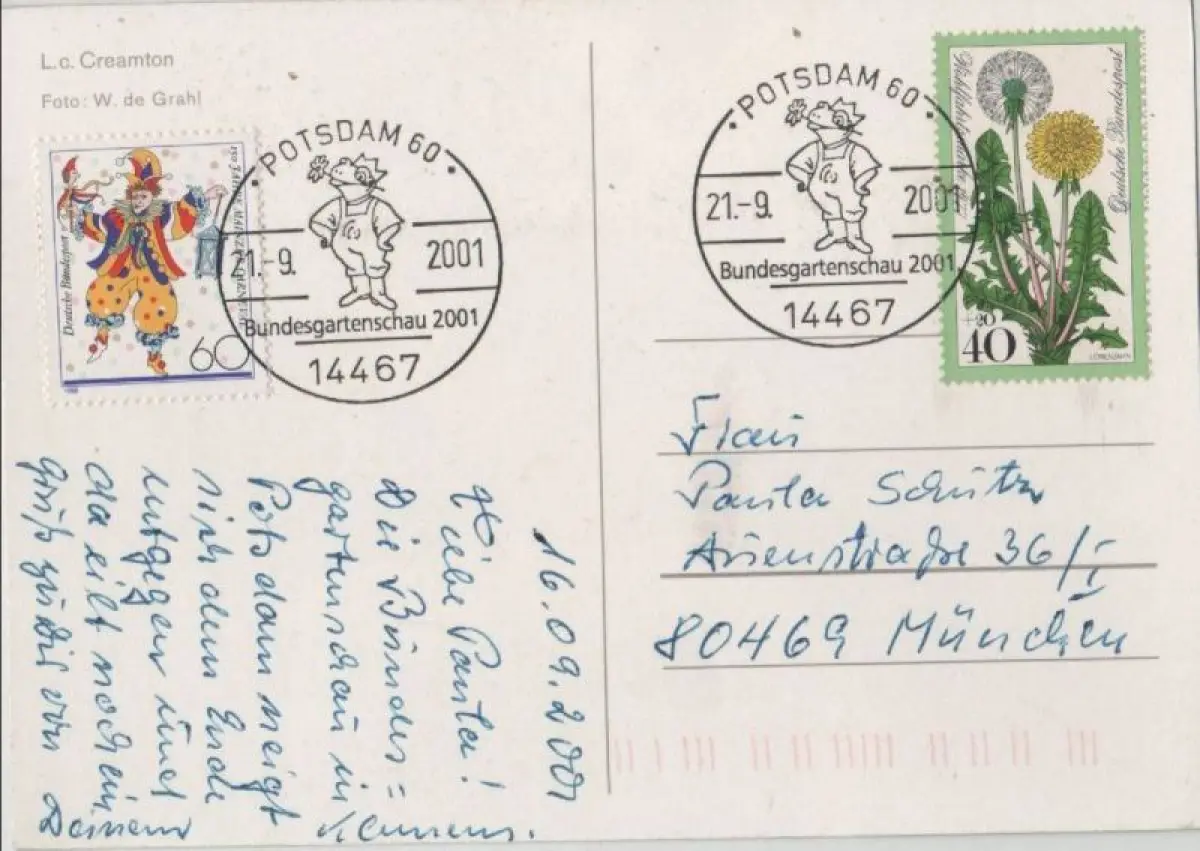 L.c. Creamton
Foto: W. de Grahl
150 JAHRE MAINZER
Deutsche Bundespost
60
POTSDAM 60
21.-9. 2001
Bundesgartenschau 2001
14467
POTSDAM 60
21.-9. 2001
Bundesgartenschau 2001
14467
Deutsche Bundespost
+20
40
LÖWENZAHN
16.09.2001
Liebe Paula!
Die Bundes=
gartenschau in
Potsdam neigt
sich dem Ende
entgegen und
da eilt noch ein
Gruß zu Dir von
Deinem
Klemens.
Frau
Paula Schütz
straße 36/I
80469 München